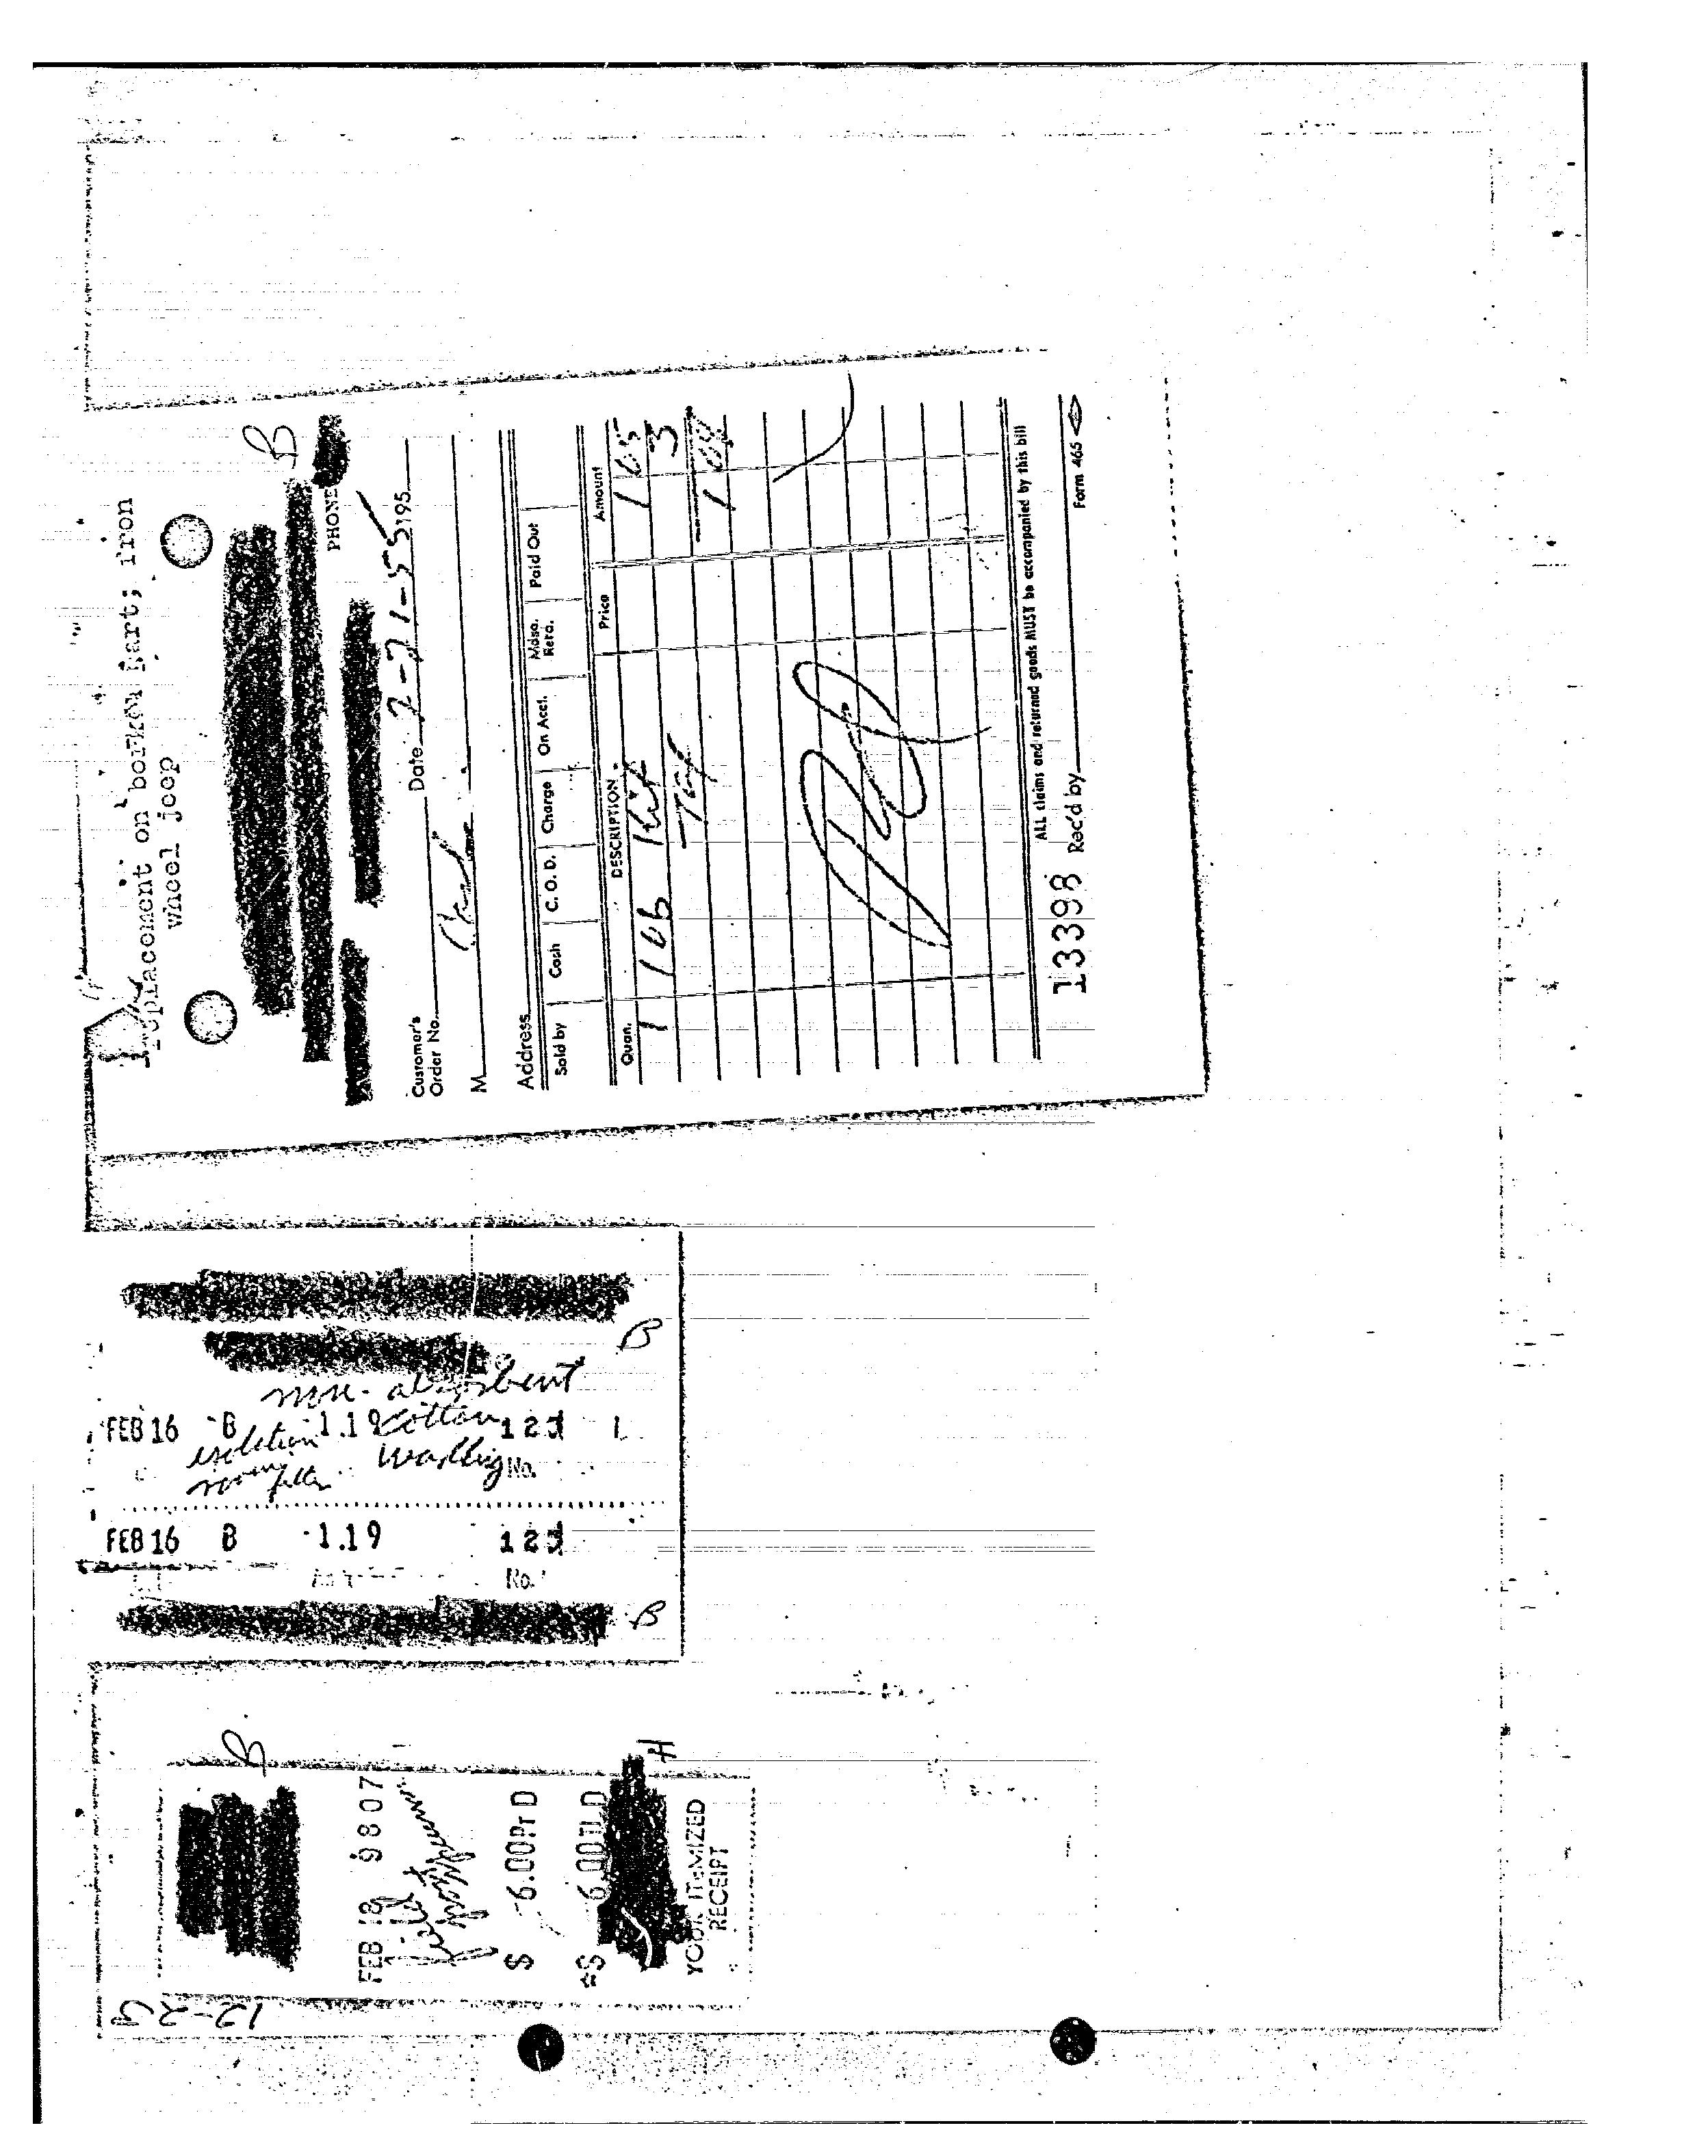 replacement on borken part; iron
wheel joop
B
PHONE
Customer's
Order No. Date 2-21-55 195
M Cash
Address
Sold by Cash C. O. D. Charge On Acct. Mdse. Retd. Paid Out
Quan. DESCRIPTION Price Amount
1 106 Kit 1 05
Tax 3
1 08
ALL claims and returned goods MUST be accompanied by this bill
13398 Rec'd by Form 465
B
non-absorbent
FEB 16 B 1.19 cotton 123 1
isolation
wadding No.
room filter
FEB 16 B 1.19 123
No.
B
B
FEB 18 9807
$ 6.00
$ 6.00
H
YOUR ITEMIZED
RECEIPT